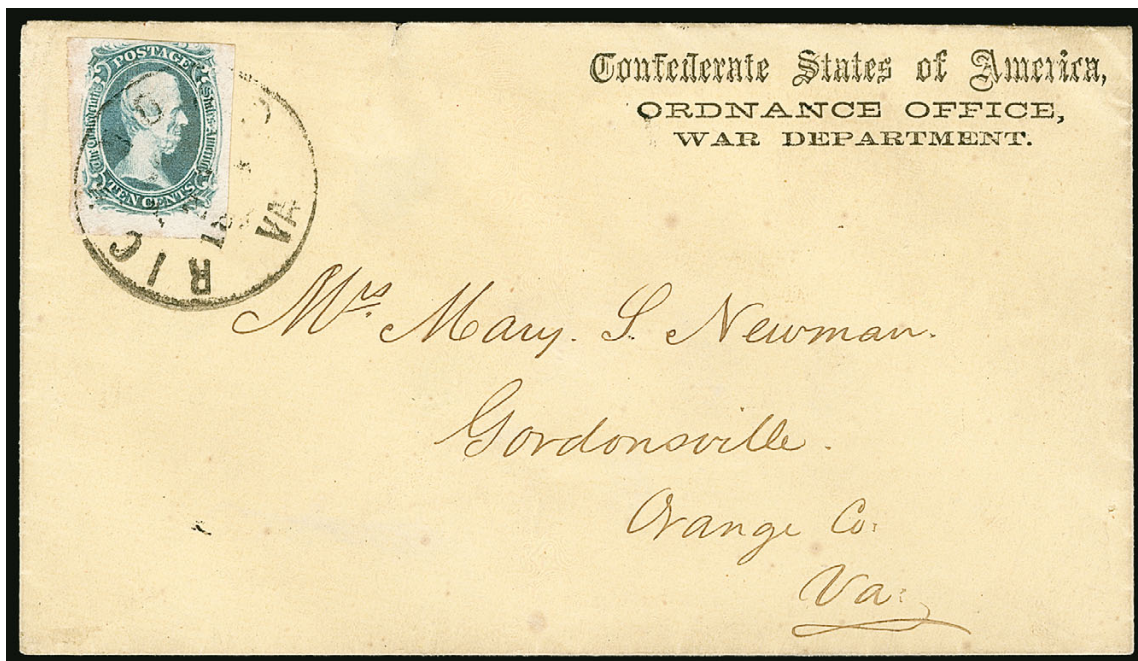 POSTAGE
The Confederate
States of America
TEN CENTS
RICHMOND
VA
Confederate States of America,
ORDNANCE OFFICE,
WAR DEPARTMENT.
Mrs. Mary. S. Newman.
Gordonsville.
Orange Co.
Va.